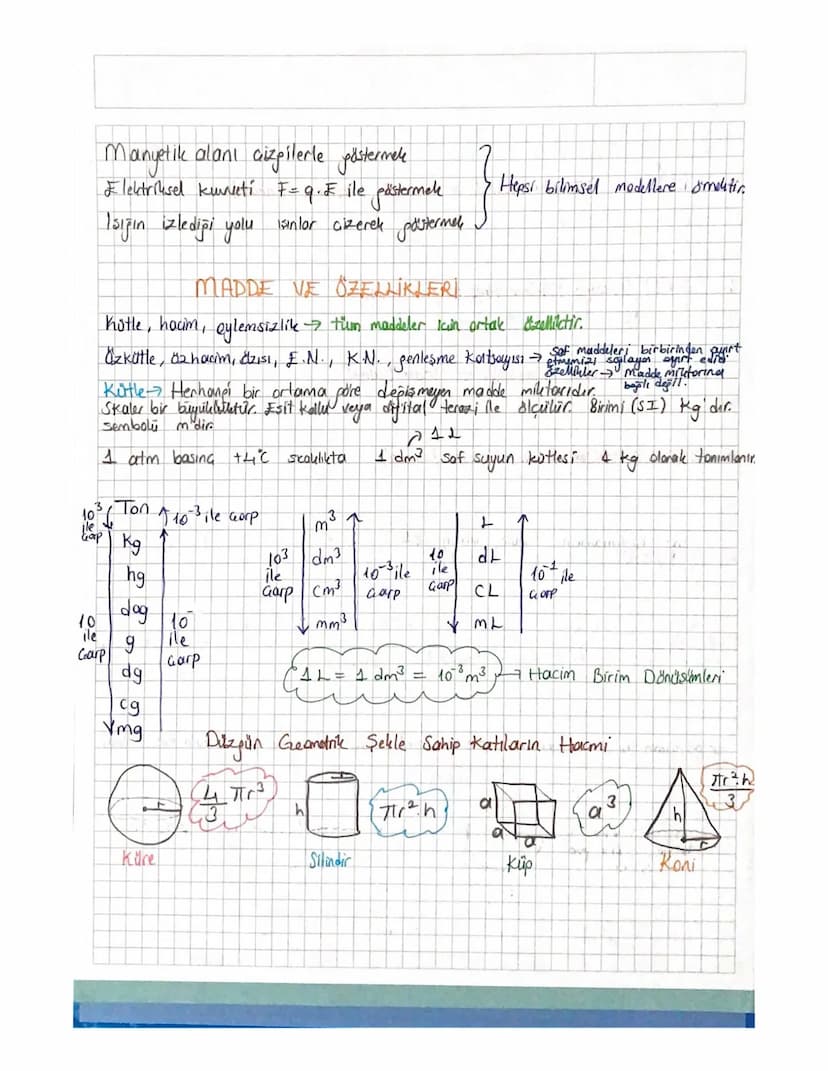 Manyetik alanı çizgilerle göstermek
Elektriksel kuvveti F=q.E ile göstermek
Işığın izlediği yolu ışınlar çizerek göstermek
Hepsi bilimsel modellere örnektir.
MADDE VE ÖZELLİKLERİ
Kütle, hacim, eylemsizlik → tüm maddeler için ortak özelliktir.
Özkütle, özhacim, özısı, E.N., K.N., genleşme katsayısı → saf maddeleri birbirinden ayırt
etmemizi sağlayan ayırt edici
özellikler → madde miktarına
bağlı değil.
Kütle → Herhangi bir ortama göre değişmeyen madde miktarıdır.
Skaler bir büyüklüktür. Eşit kollu veya dijital terazi ile ölçülür. Birimi (SI) kg'dır.
sembolü m'dir.
1L
1 atm basınç +4°C sıcaklıkta 1 dm³ saf suyun kütlesi 1 kg olarak tanımlanır.
10³ ile çarp
Ton
10⁻³ ile çarp
kg
hg
dag
g
dg
cg
mg
10 ile çarp
10⁻ ile çarp
10³ ile çarp
m³
dm³
cm³
mm³
10⁻³ ile çarp
10 ile çarp
L
dL
CL
mL
10⁻¹ ile çarp
1L = 1 dm³ = 10⁻³ m³ → Hacim Birim Dönüşümleri
Düzgün Geometrik Şekle Sahip Katıların Hacmi
r
4/3 πr³
Küre
r
h
πr².h
Silindir
a
a
a
a³
Küp
h
r
πr².h/3
Koni